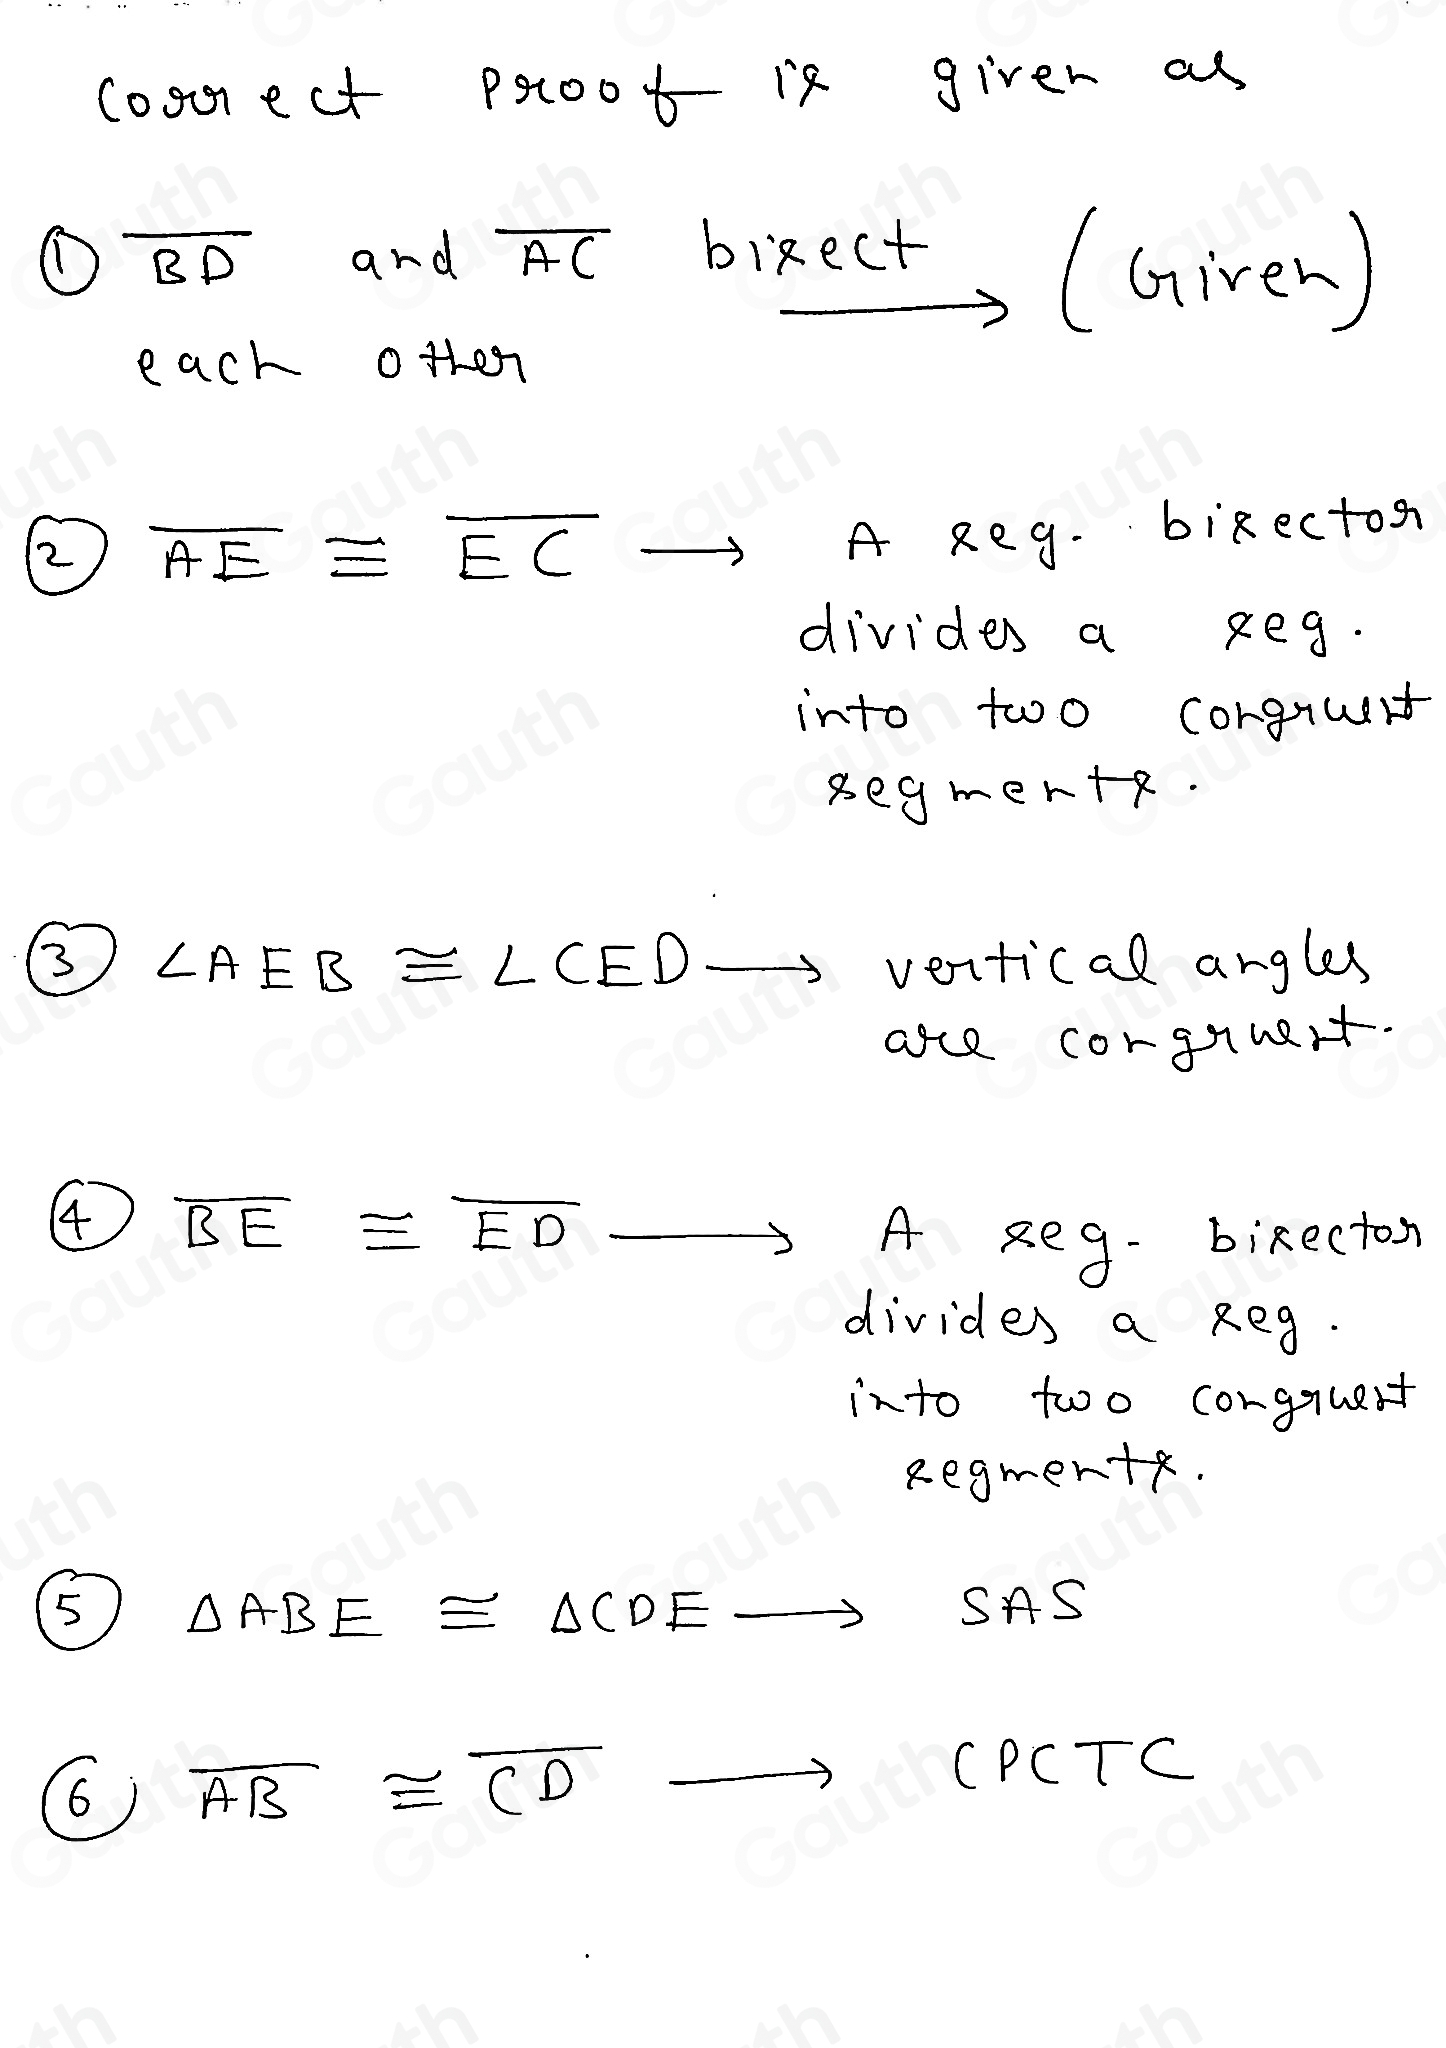 Correct proof is given as
① $\overline{BD}$ and $\overline{AC}$ bisect ⟶ (Given)
each other
② $\overline{AE}$ ≅ $\overline{EC}$ ⟶ A seg. bisector
divides a seg.
into two congruent
segments.
③ ∠AEB ≅ ∠CED ⟶ vertical angles
are congruent.
④ $\overline{BE}$ ≅ $\overline{ED}$ ⟶ A seg. bisector
divides a seg.
into two congruent
segments.
⑤ ΔABE ≅ ΔCDE ⟶ SAS
⑥ $\overline{AB}$ ≅ $\overline{CD}$ ⟶ CPCTC